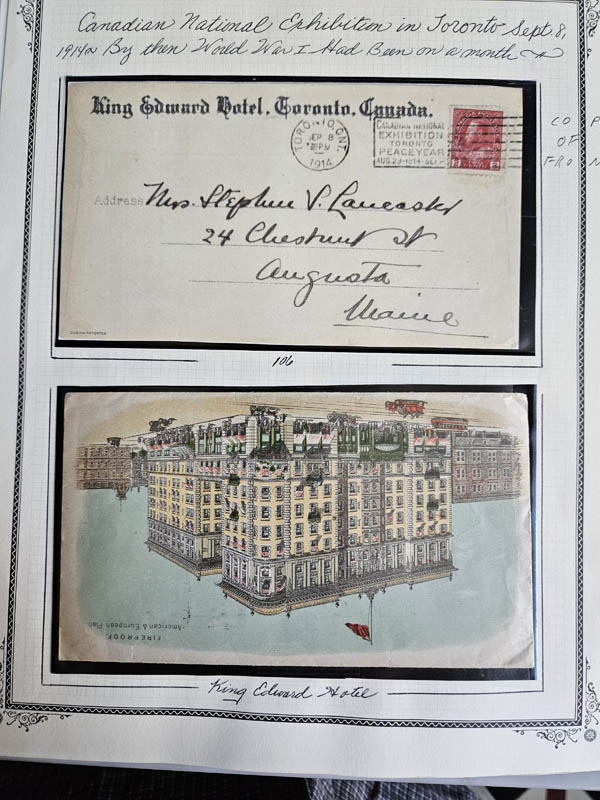 Canadian National Exhibition in Toronto Sept 8,
1914 By then World War I Had Been on a month
CO P
OF
FRO N
King Edward Hotel, Toronto, Canada.
TORONTO, ONT.
SEP 8
PM
1914
CANADIAN NATIONAL
EXHIBITION
TORONTO
PEACE YEAR
AUG. 29-1914-SEP.
2 2
Address Mrs. Stephen V. Lancaster
24 Chestnut St
Augusta
Maine
106
FIREPROOF.
American & European Plan
King Edward Hotel